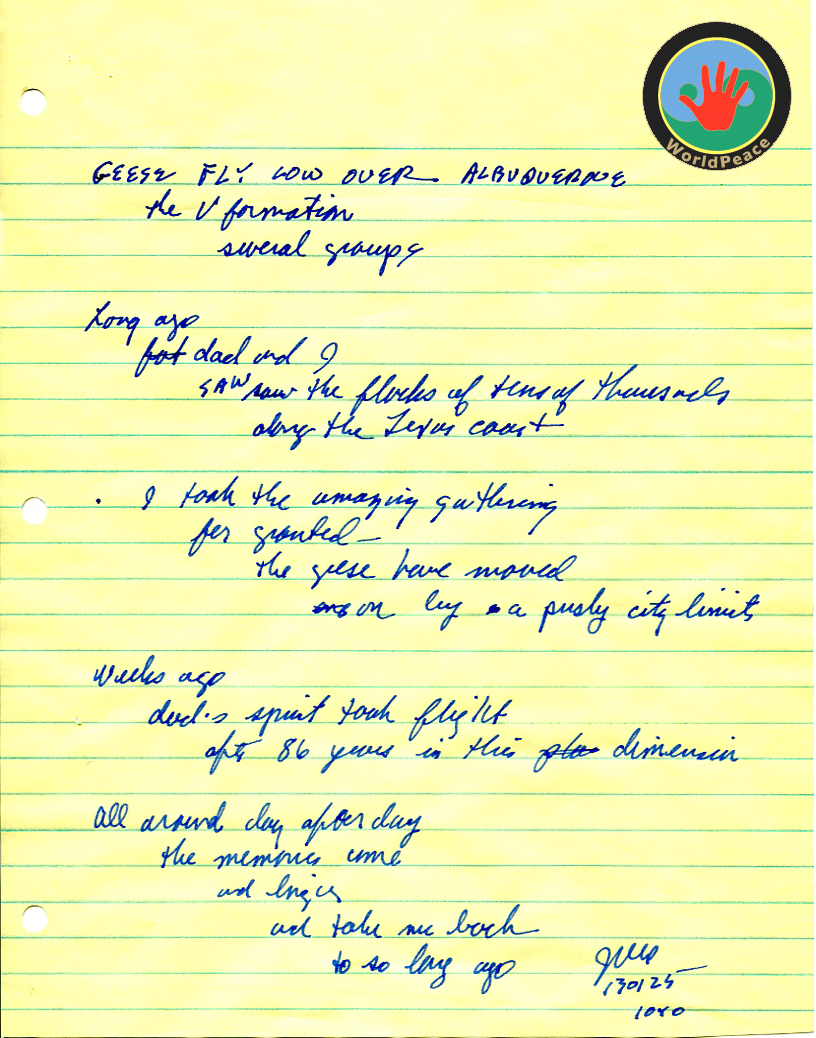 WorldPeace
GEESE FLY LOW OVER ALBUQUERQUE
the V formation
several groups
Long ago
dad and I
SAW saw the flocks of tens of thousands
along the Texas coast
I took the amazing gathering
for granted
the geese have moved
on by a pushy city limits
Weeks ago
dad's spirit took flight
after 86 years in this dimension
All around day after day
the memories come
and linger
and take me back
to so long ago
130125
1040